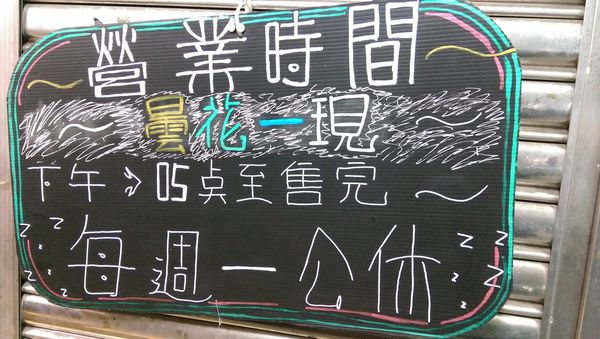 營業時間
~ 曇花一現 ~
下午→05点至售完~
z z z 每週一公休 z z z z